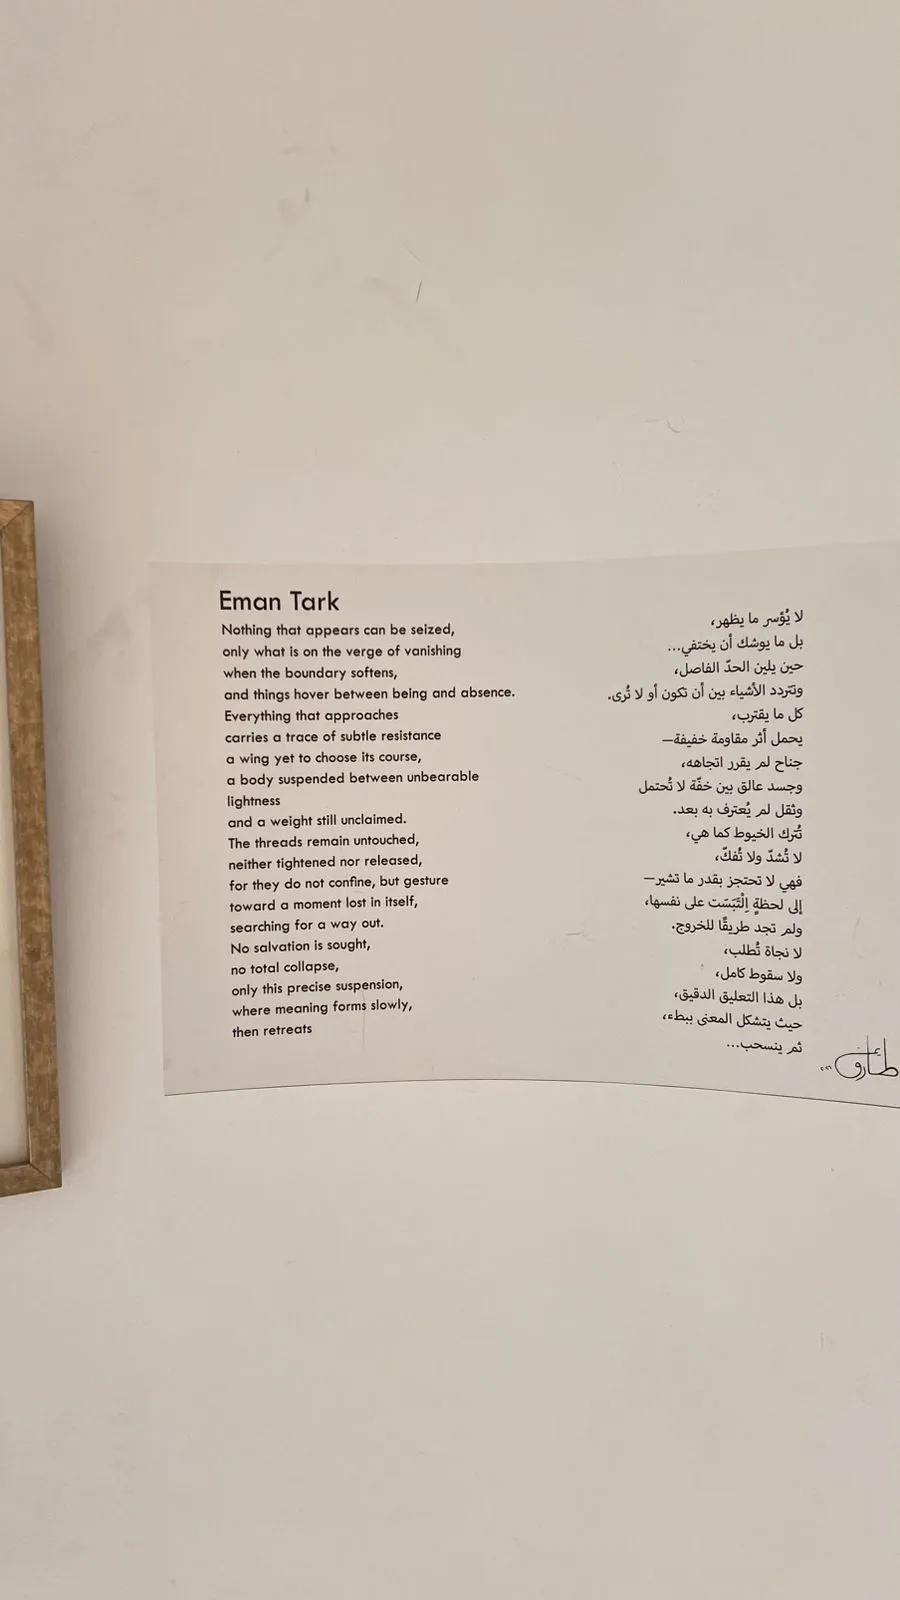 Eman Tark
Nothing that appears can be seized,
only what is on the verge of vanishing
when the boundary softens,
and things hover between being and absence.
Everything that approaches
carries a trace of subtle resistance
a wing yet to choose its course,
a body suspended between unbearable
lightness
and a weight still unclaimed.
The threads remain untouched,
neither tightened nor released,
for they do not confine, but gesture
toward a moment lost in itself,
searching for a way out.
No salvation is sought,
no total collapse,
only this precise suspension,
where meaning forms slowly,
then retreats
لا يُؤسر ما يظهر،
بل ما يوشك أن يختفي...
حين يلين الحدّ الفاصل،
وتتردد الأشياء بين أن تكون أو لا تُرى.
كل ما يقترب،
يحمل أثر مقاومة خفيفة—
جناح لم يقرر اتجاهه،
وجسد عالق بين خفّة لا تُحتمل
وثقل لم يُعترف به بعد.
تُترك الخيوط كما هي،
لا تُشدّ ولا تُفكّ،
فهي لا تحتجز بقدر ما تشير—
إلى لحظةٍ اِلْتَبَسَت على نفسها،
ولم تجد طريقًا للخروج.
لا نجاة تُطلب،
ولا سقوط كامل،
بل هذا التعليق الدقيق،
حيث يتشكل المعنى ببطء،
ثم ينسحب...